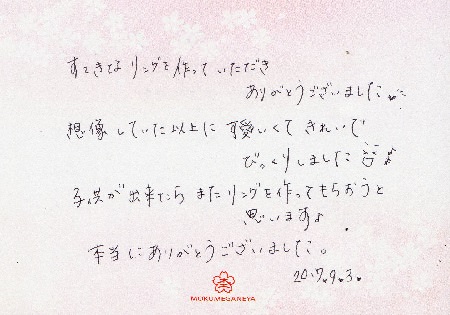 すてきな リングを作って いただき
ありがとうございました。
想像していた以上に 可愛いくて きれいで
びっくりしました♪
子供が出来たら またリングを作ってもらおうと
思います♪
本当にありがとうございました。
2017.9.3.
MOKUMEGANEYA